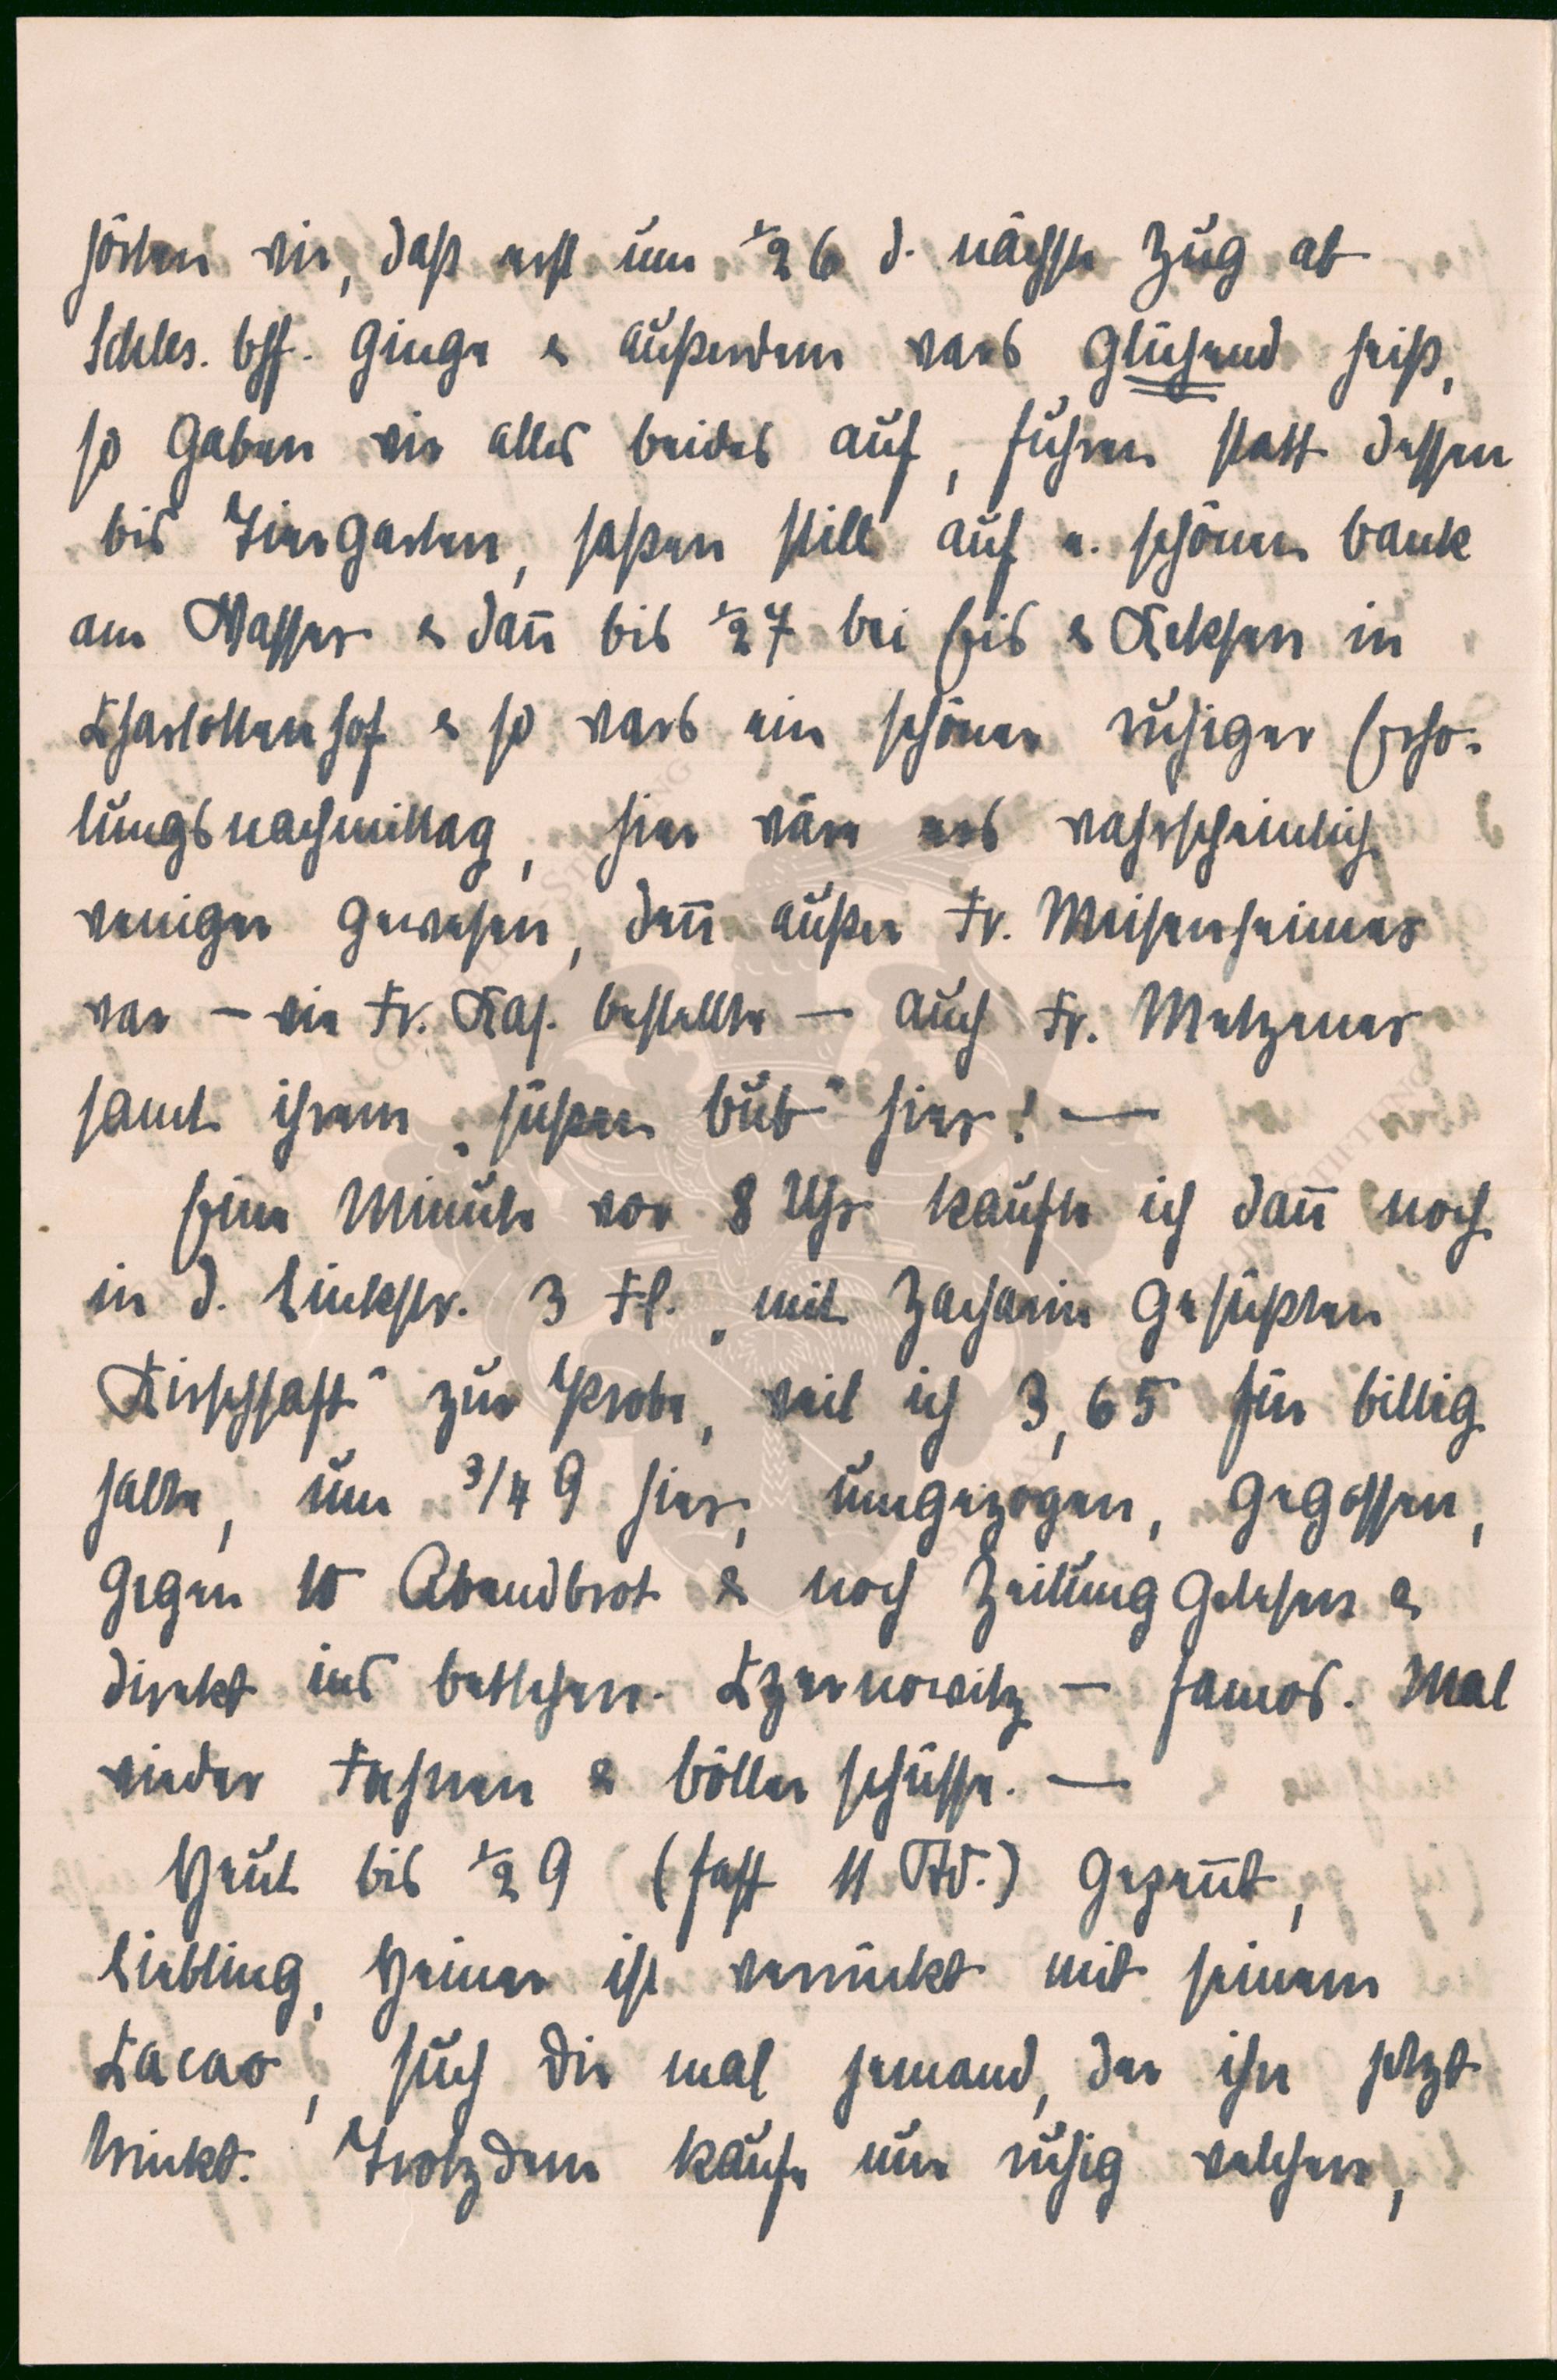 hörten wir, daß erst um ½ 6 d. nächste Zug ab
Schles. Bhf. ginge & außerdem wars glühend heiß,
so gaben wir alles beides auf, fuhren statt dessen
bis Tiergarten, saßen still auf e. schönen Bank
am Wasser & dañ bis ½ 7 bei Eis & Keksen in
Charlottenhof & so wars ein schöner ruhiger Erho-
lungsnachmittag, hier wäre es wahrscheinlich
weniger gewesen, deñ außer Fr. Meisenheimer
war – wie Fr. Kas. bestellte – auch Fr. Metzener
samt ihrem „süßen Bub“ hier! —
Eine Minute vor 8 Uhr kaufte ich dañ noch
in d. Linkstr. 3 Fl. „mit Zacharin gesüßten
Kirschsaft“ zur Probe, weil ich 3,65 für billig
halte, um 3/4 9 hier, umgezogen, gegossen,
gegen 10 Abendbrot & noch Zeitung gelesen &
direkt ins Bettchen. Czernowitz – famos. Mal
wieder Fahnen & Böllerschüsse. —
Heut bis ½ 9 (fast 11 Std.) gepeñt,
Liebling, Heiner ist verrückt mit seinem
Cacao, such Dir mal jemand, der ihn jetzt
trinkt. Trotzdem kaufe nur ruhig welchen,